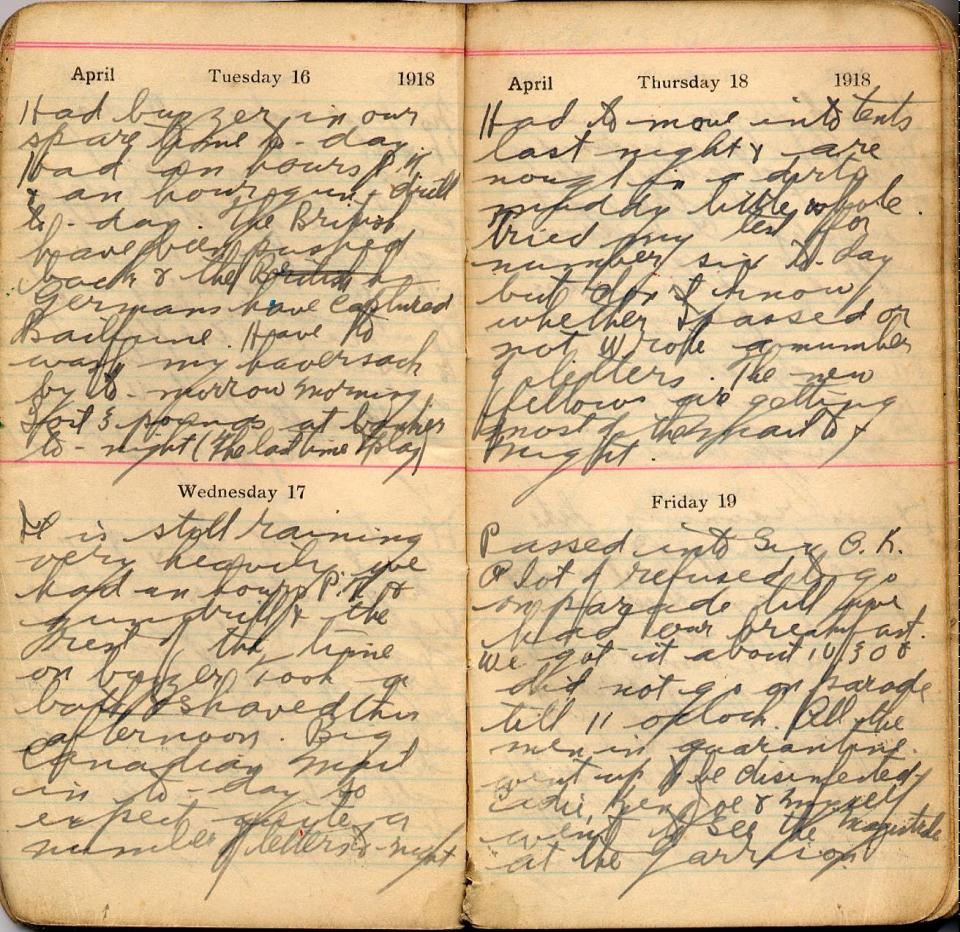 April Tuesday 16 1918
Had buzzer in our
spare time to-day.
Had an hours P.T.
& an hour gun drill
to-day. The British
have been pushed
back & the British
Germans have captured
Bailleul. Have to
wash my haversack
by to-morrow morning
Lost 3 pounds at banker
to-night (the last time I play)
Wednesday 17
It is still raining
very heavily. We
had an hours P.T. &
gun drill & the
rest of the time
on buzzer. Took a
bath & shaved this
afternoon. Big
Canadian mail
in to-day so
expect quite a
number of letters to-night
April Thursday 18 1918
Had to move into tents
last night & are
now in a dirty
muddy little whole.
Tried my test for
number six to-day
but don't know
whether I passed or
not. Wrote a number
of letters. The new
fellows are getting
most of their mail to
night.
Friday 19
Passed into Six O.K.
A lot of refused to go
on parade till we
had our breakfast.
We got it about 10/30 &
did not go on parade
till 11 oclock. All the
men in quarantine
went up to be disinfected.
Joe & myself
went to see the
at the garrison.